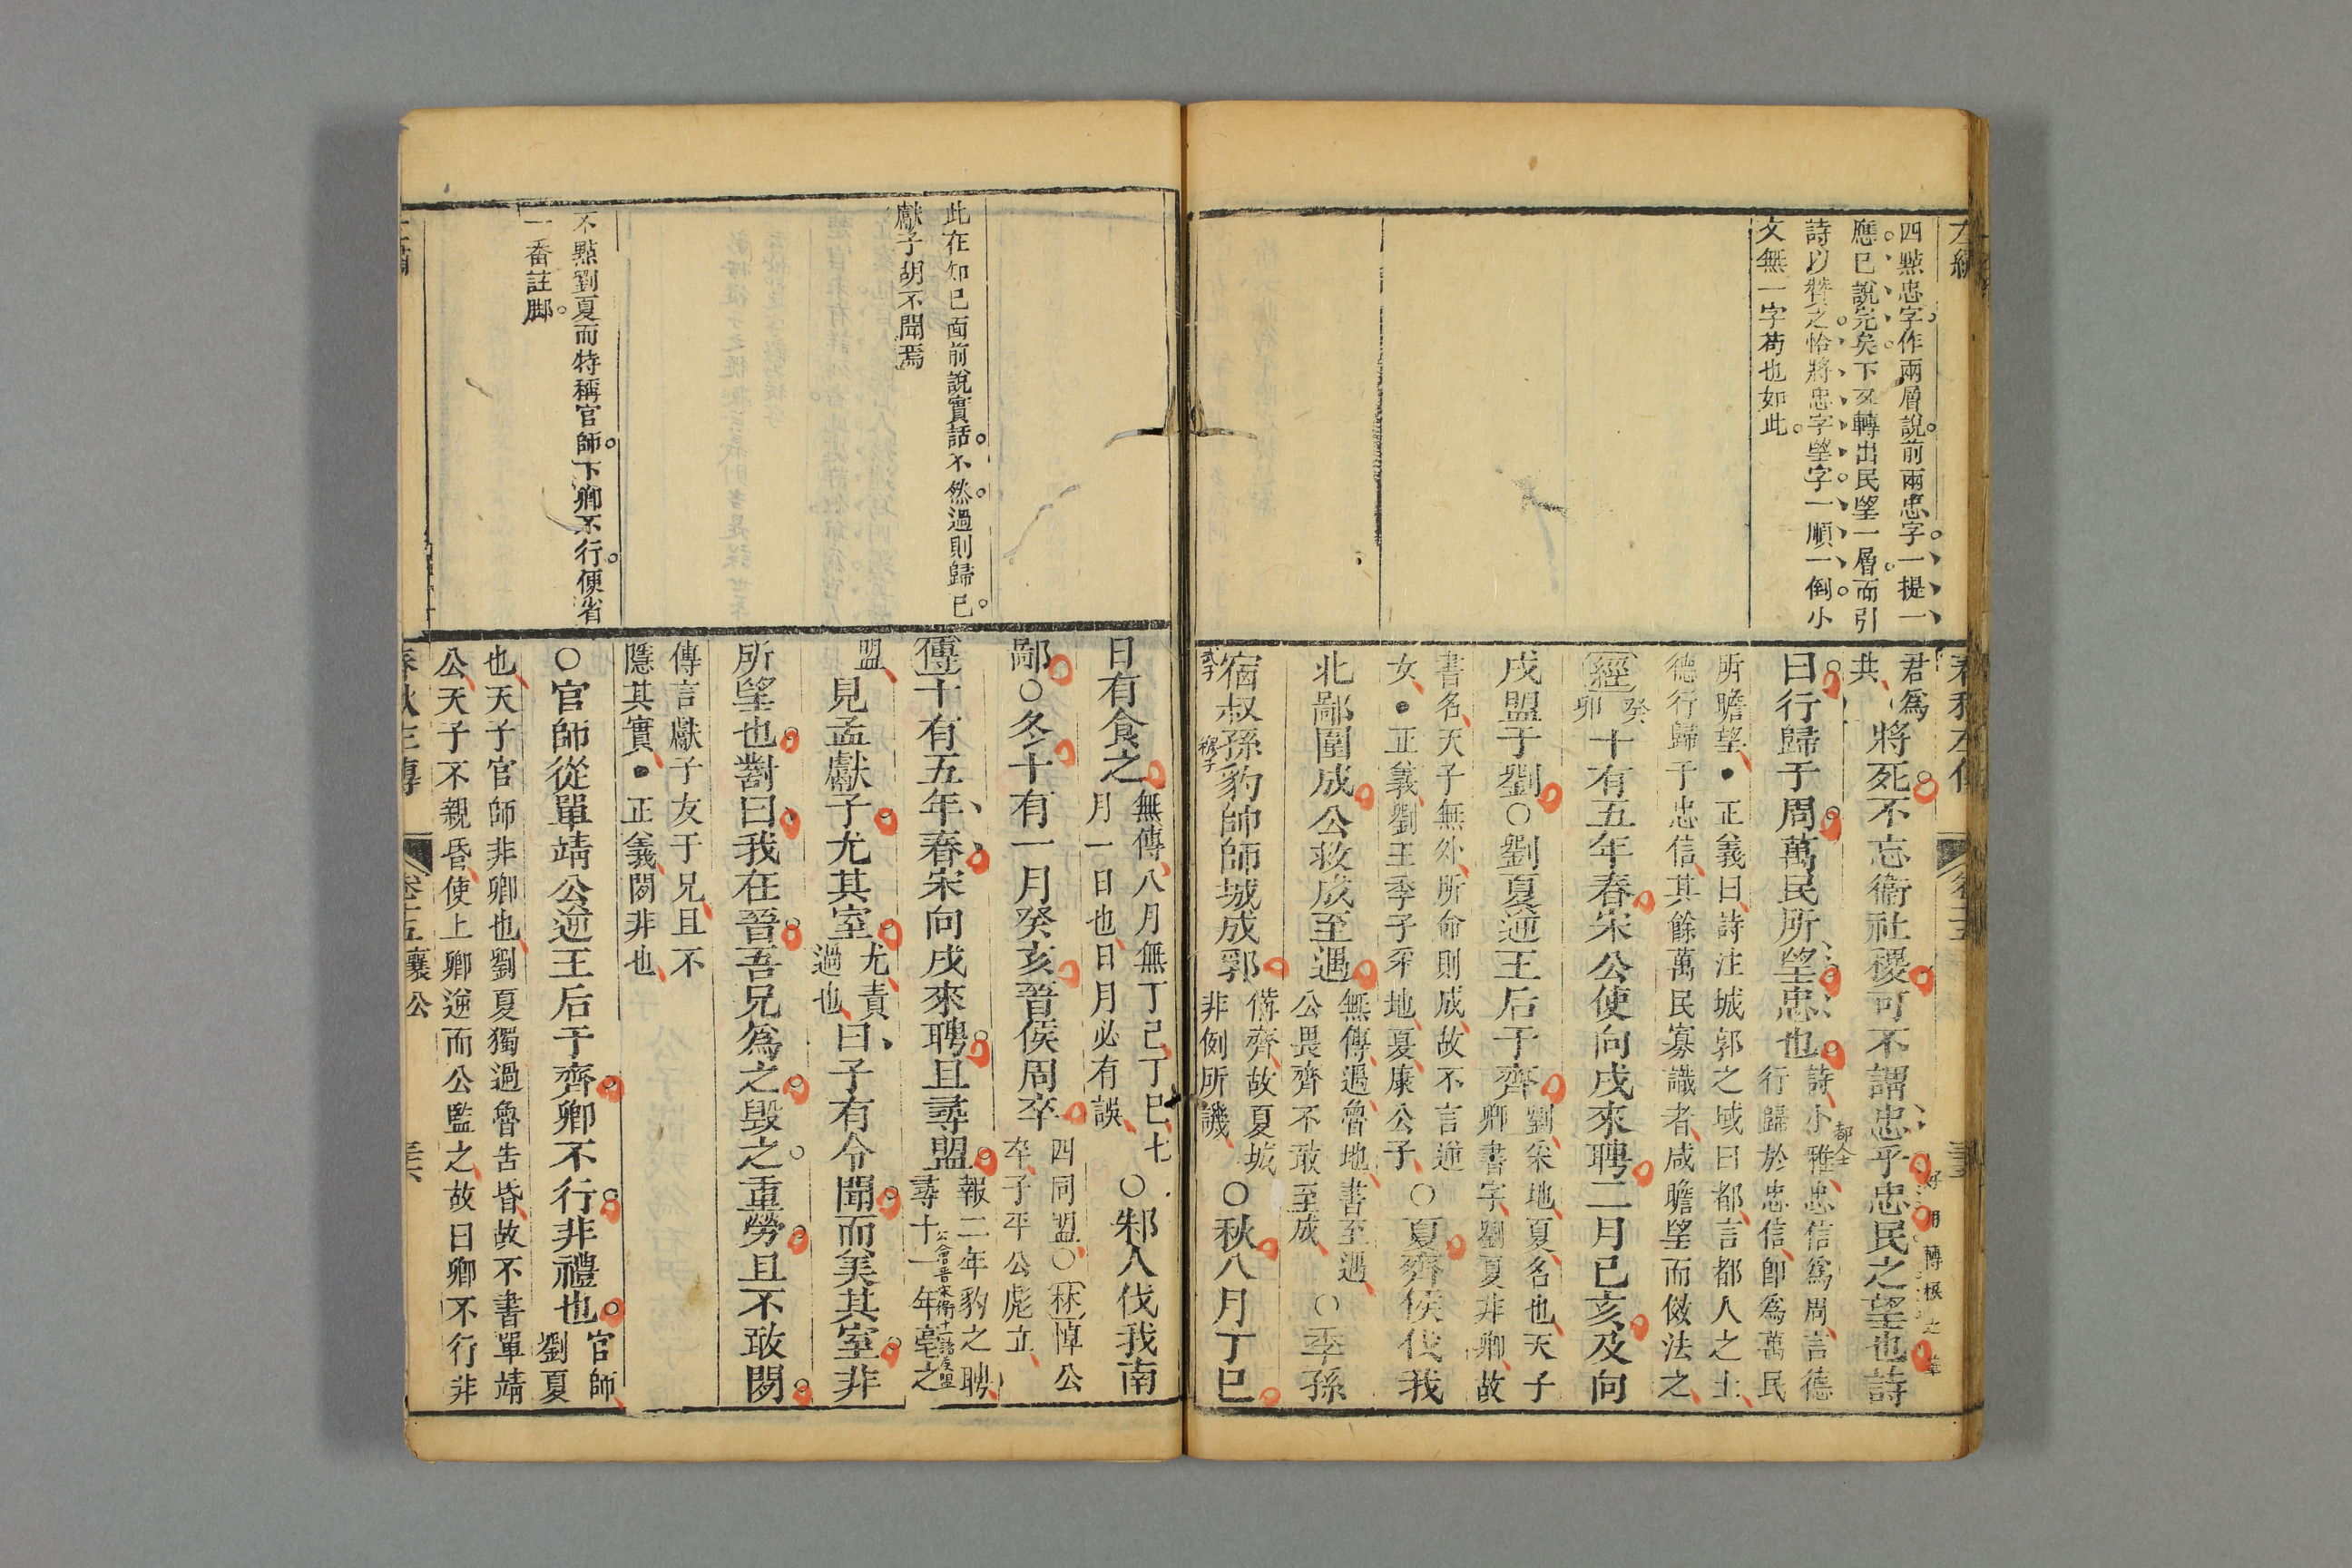 四點忠字作兩層說前兩忠字一提一
應已說完矣下又轉出民望一層而引
詩以贊之恰將忠字望字一順一倒小
文無一字苟也如此
君爲
共
將死不忘衞社稷可不謂忠乎忠民之望也詩
曰行歸于周萬民所望忠也
詩小雅忠信爲周言德
行歸於忠信卽爲萬民
都人士
所瞻望●正義曰詩注城郭之域曰都言都人之士
德行歸于忠信其餘萬民寡識者咸瞻望而倣法之
經
癸
卯
十有五年春宋公使向戌來聘二月己亥及向
戌盟于劉○劉夏逆王后于齊
劉采地夏名也天子
卿書字劉夏非卿故
書名天子無外所命則成故不言逆
女●正義劉王季子采地夏康公子
○夏齊侯伐我
北鄙圍成公救成至遇
無傳遇魯地書至遇
公畏齊不敢至成
○季孫
宿叔孫豹帥師城成郛
武子
穆子
備齊故夏城
非例所譏
○秋八月丁巳
日有食之
無傳八月無丁巳丁巳七
月一日也日月必有誤
○邾人伐我南
鄙○冬十有一月癸亥晉侯周卒
四同盟○林悼公
卒子平公彪立
傳十有五年春宋向戌來聘且尋盟
報二年豹之聘
尋十一年亳之
盟
見孟獻子尤其室
尤責
過也
曰子有令聞而美其室非
所望也對曰我在晉吾兄爲之毀之重勞且不敢閒
傳言獻子友于兄且不
隱其實●正義閒非也
○官師從單靖公逆王后于齊卿不行非禮也
官師
劉夏
也天子官師非卿也劉夏獨過魯告昏故不書單靖
公天子不親昏使上卿逆而公監之故曰卿不行非
此在知己面前說實話不然過則歸己
獻子胡不聞焉
不點劉夏而特稱官師下卿不行便省
一番註脚
春秋左傳
卷十五襄公